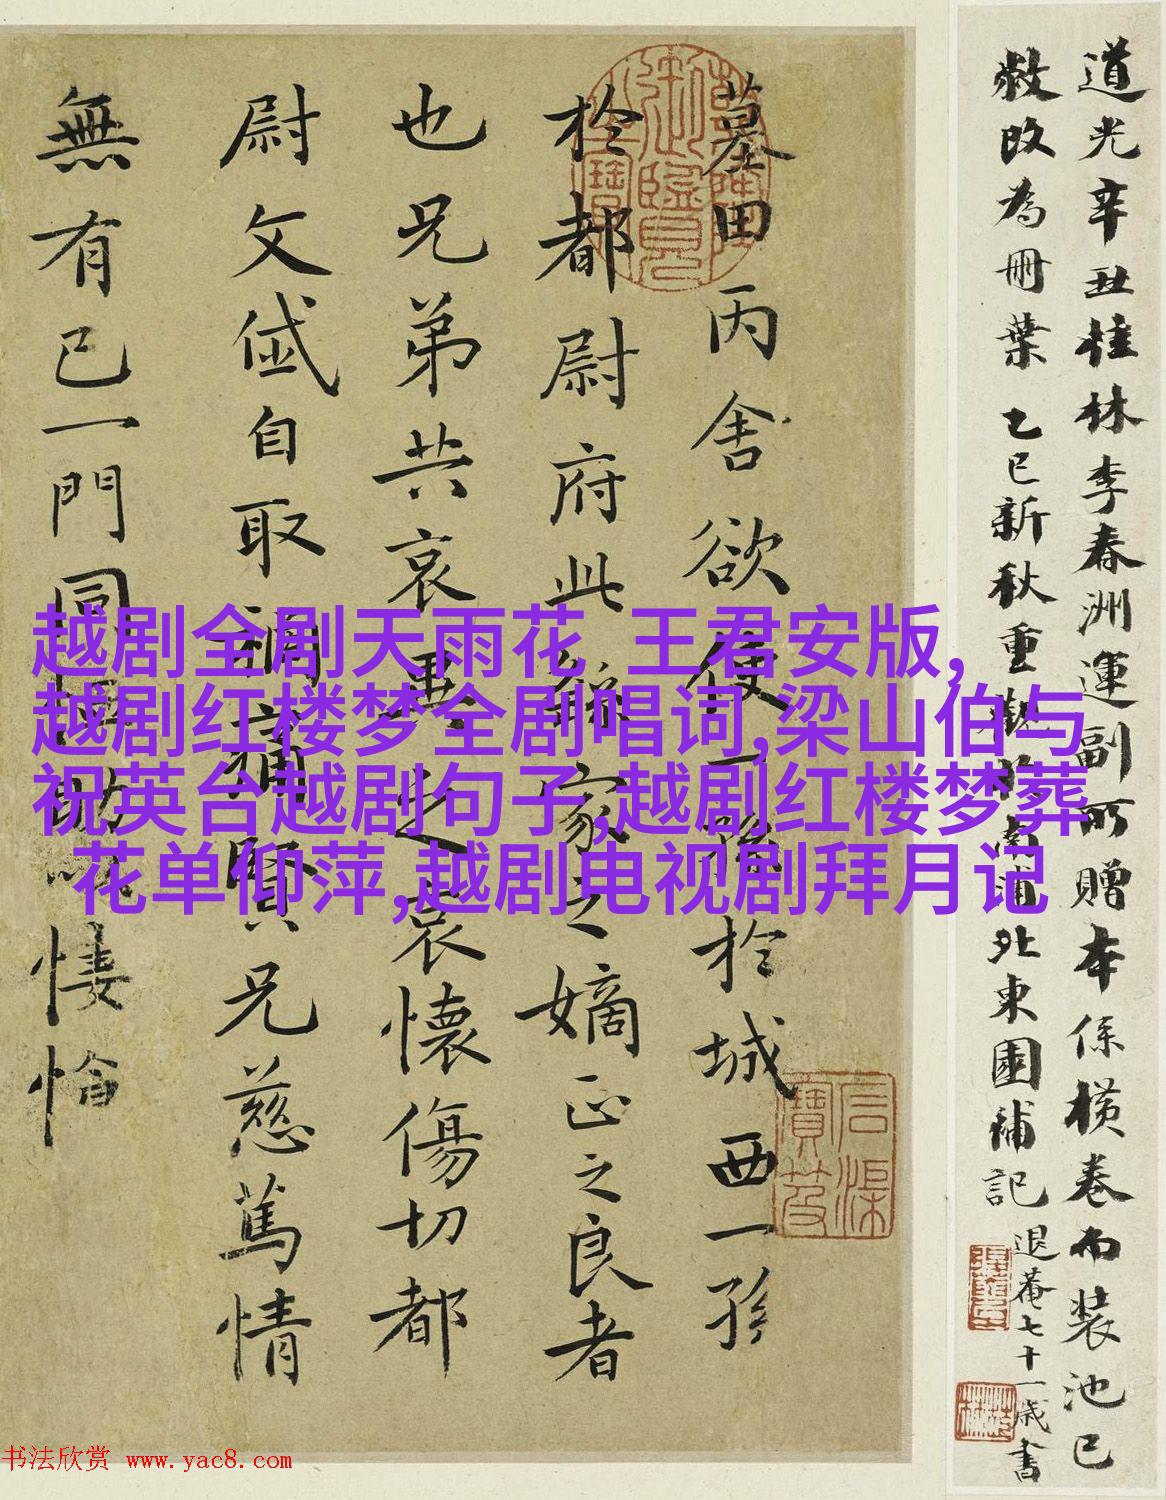 道光辛丑桂林李春洲運副所贈本係横卷而装池已
敝改為冊葉 乙巳新秋重觀於南浦北東園補記 退菴七十一歲書
墓田丙舍欲使一孫於城西一孫
於都尉府此繇家之嫡正之良者
也兄弟共哀異之哀懷傷切都
尉文岱自取禍痛賢兄慈篤情
無有已一門同恤助以悽愴
越剧全剧天雨花 王君安版,
越剧红楼梦全剧唱词,梁山伯与
祝英台越剧句子,越剧红楼梦葬
花单仰萍,越剧电视剧拜月记
书法欣赏 www.yac8.com